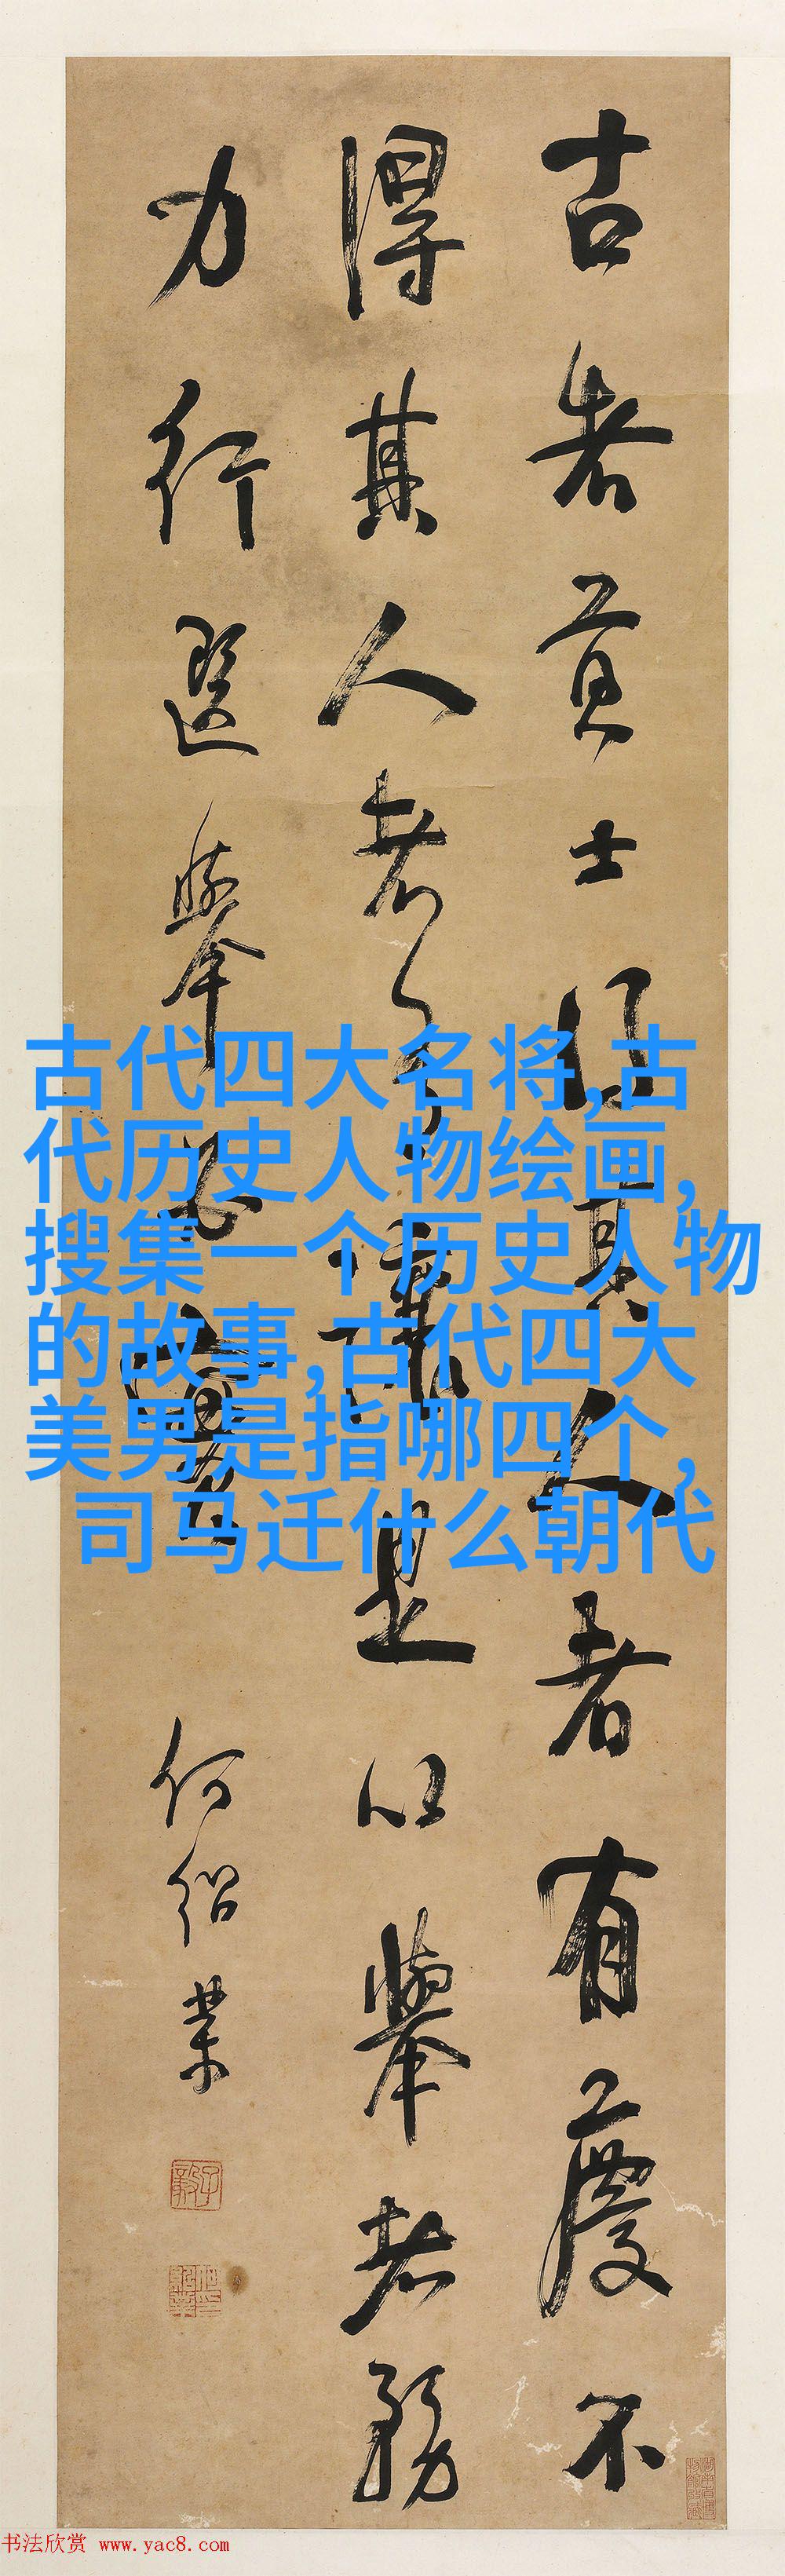 古代四大名将,古
代历史人物绘画,
搜集一个历史人物
的故事,古代四大
美男是指哪四个,
司马迁什么朝代
古者貢士得其人者有慶不
得其人者有讓是以舉者務
力行選舉必
何紹業
书法欣赏 www.yac8.com